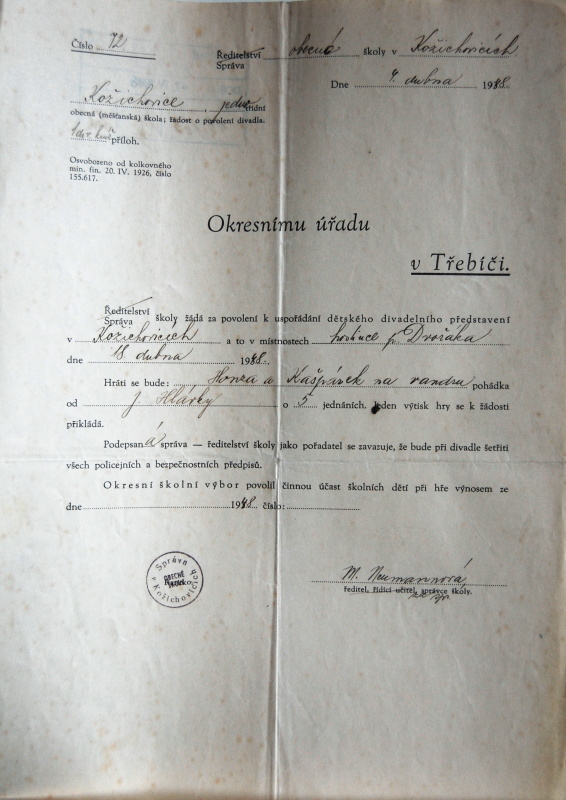 Číslo 72
Ředitelství
Správa obecná školy v Kožichovicích
Dne 4. dubna 1948.
Kožichovice, jednotřídní
obecná (měšťanská) škola; žádost o povolení divadla.
příloh.
Osvobozeno od kolkovného
min. fin. 20. IV. 1926, číslo
155.617.
Okresnímu úřadu
v Třebíči.
Ředitelství
Správa školy žádá za povolení k uspořádání dětského divadelního představení
v Kožichovicích a to v místnostech hostince p. Dvořáka
dne 18. dubna 1948.
Hráti se bude: Honza a Kašpárek na vandru pohádka
od J. Hlávky o 5 jednáních. Jeden výtisk hry se k žádosti
přikládá.
Podepsaná správa — ředitelství školy jako pořadatel se zavazuje, že bude při divadle šetřiti
všech policejních a bezpečnostních předpisů.
Okresní školní výbor povolil činnou účast školních dětí při hře výnosem ze
dne 1948. číslo:
Správa
OBECNÉ
Razítko
v Kožichovicích
M. Neumannová,
ředitel, řídící učitel, správce školy.